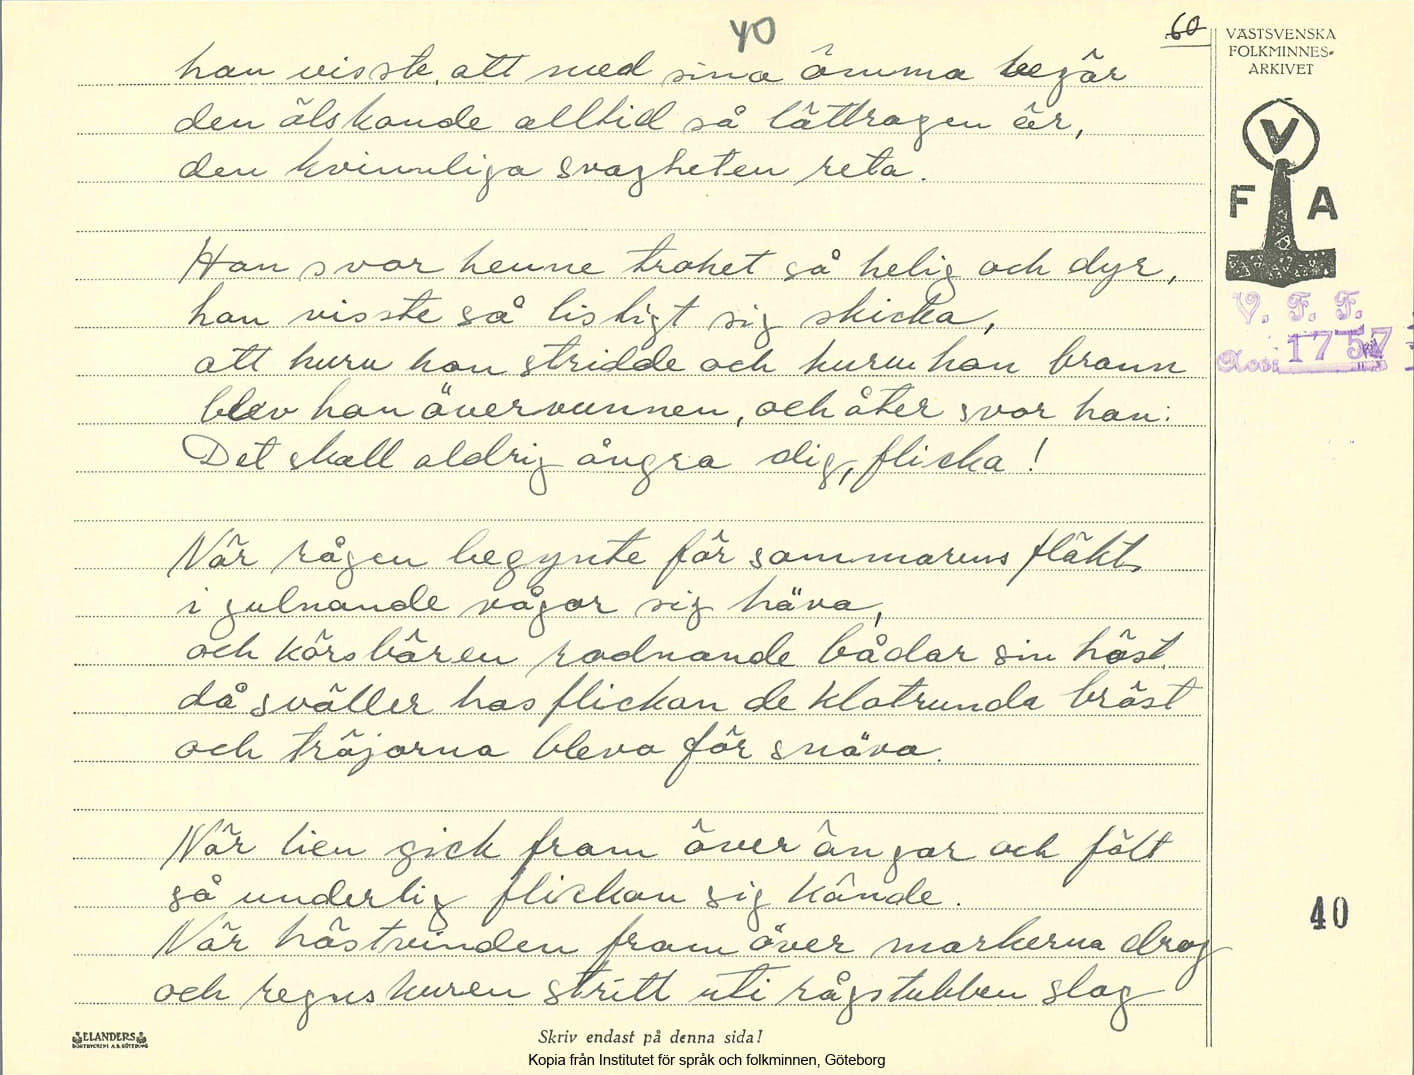 40
60
VÄSTSVENSKA
FOLKMINNES-
ARKIVET
han visste, att med sina ömma begär
den älskande alltid så lättrogen är,
den kvinnliga svagheten reta.
V
F A
Han svor henne trohet så helig och dyr,
han visste så listigt sig skicka,
att huru hon stridde och huru hon brann
blev hon övervunnen, och åter svor han:
Det skall aldrig ångra dig, flicka!
V. F. F.
Acc. 1757
När rågen begynte för sommarens fläkt
i gulnande vågor sig häva,
och körsbären rodnande bådar sin höst
då sväller hos flickan de klotrunda bröst
och tröjorna bleva för snäva.
När lien gick fram över ängar och fält
så underlig flickan sig kände.
När höstvinden fram över markerna drog
och regnskuren stritt uti rågstubben slog
40
ELANDERS
BOKTRYCKERI A.B. GÖTEBORG
Skriv endast på denna sida!
Kopia från Institutet för språk och folkminnen, Göteborg